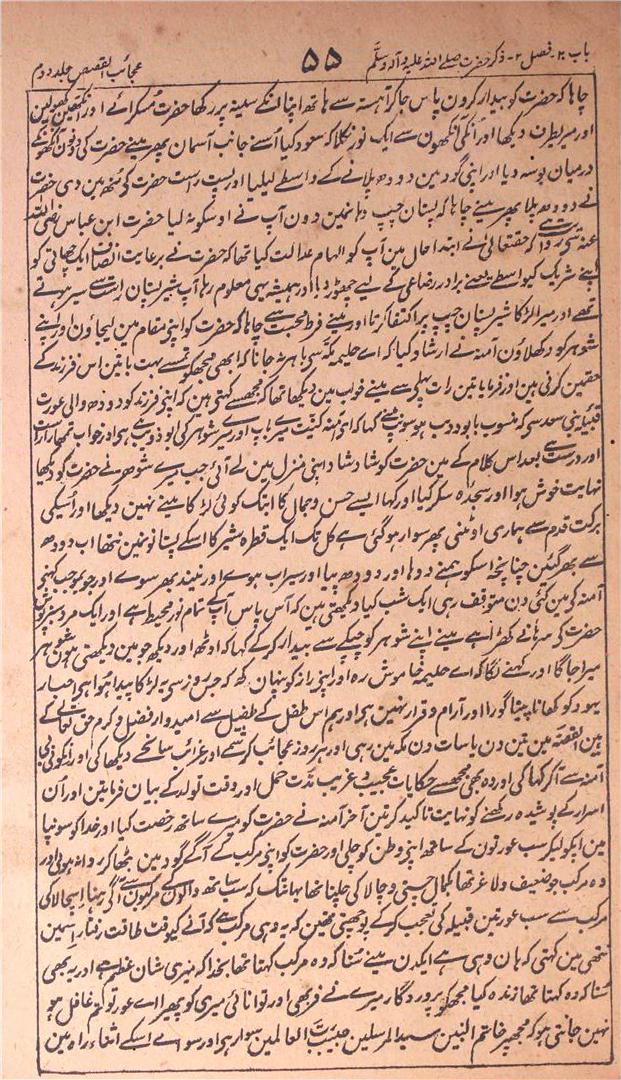 باب ۲۔ فصل ۲۔ ذکر حضرت صلے اللہ علیہ وآلہ وسلم ۵۵ عجائب القصص جلد دوم
چاہا کہ حضرت کو بیدار کرون پاس جاکر آہستہ سے ہاتھ اپنا انکے سینہ پر رکھا حضرت مُسکرائے اور آنکھین کھولین
اور میریطرف دیکھا اور اُنکی آنکھون سے ایک نور نکلا کہ صعود کیا اُسنے جانب آسمان پھر مینے حضرت کی دونون آنکھونکے
درمیان بوسہ دیا اور اپنی گود مین دودھ پلانے کے واسطے لیلیا اور پست راست حضرت کی مُنھ مین دی حضرت
نے دودھ پیا پھر مینے چاہا کہ پستان چپ دہانمین دون آپ نے اوسکو نہ لیا حضرت ابن عباس رضی اللہ
عنہ سے روا کہ حقتعالیٰ نے ابتدا حال مین آپ کو الہام عدالت کیا تھا کہ حضرت نے برعایت انصاف ایک چھاتی کو
اپنے شریک کیواسطے یعنے برادر رضاعی کے لیے چھوڑ دیا اور ہمیشہ یہی معلوم رہا آپ شیر پستان راست سے سیر ہوتے
تھے اور میرا لڑکا شیر پستان چپ پر اکتفا کرتا اور مینے فرط محبت سے چاہا کہ حضرت کو اپنی مقام مین لیجاؤن اور اپنے
شوہر کو دکھلاؤن آمنہ نے ارشاد کیا کہ اے حلیمہ مکہ سی باہر نہ جانا کہ ابھی مجھکو تمسے بہت باتین اس فرزند کے
حقمین کرنی ہین اور فرمایا تین رات پہلی سے مینے خواب مین دیکھا تھا کہ مجھسے کہتی ہین کہ اپنی فرزند کو دودھ والی عورت
قبیلہ بنی سعد سی کہ منسوب بابو ذویب ہو سونپ مینے کہا کہ ای آمنہ کنیت میرے باپ اور میرے شوہر کی ابو ذویب ہی اور خواب تمھارا راست
اور درست ہے بعد اس کلام کے مین حضرت کو شاد شاد اپنی منزل مین لے آئی جب میرے شوہر نے حضرت کو دیکھا
نہایت خوش ہوا اور سجدۂ شکر کیا اور کہا ایسے حسن وجمال کا ابتک کوئی لڑکا مینے نہین دیکھا اور اُسیکی
برکت قدم سے ہماری اونٹنی پھر سوار ہو گئی ہے کل تک ایک قطرہ شیر کا اسکے پستانونمین نتھا اب دودھ
سے بھر گئین چنانچہ اسکو ہمنے دوہا اور دودھ پیا اور سیراب ہوے اور نیند بھر سوے اور بموجب کہنے
آمنہ کی مین کئی دن متوقف رہی ایک شب کیا دیکھتی ہین کہ آس پاس آپکے تمام نور محیط ہے اور ایک مرد سبزپوش
حضرت کی سرہانے کھڑا ہے مینے اپنے شوہر کو چپکے سے بیدار کرکے کہا کہ اوٹھ اور دیکھ جو مین دیکھتی ہون شوہر
میرا جاگا اور کہنے لگا کہ اے حلیمہ خاموش رہ اور اپنی راز کو پنہان رکھ کہ جس روز سی یہ لڑکا پیدا ہوا ہی احبار
یہود کو کھانا پینا گوارا اور آرام و قرار نہین ہی اور ہم اس طفل کے طفیل سے امیدوار فضل و کرم حق تعالیٰ کے
ہین القصّہ مین تین دن یا سات دن مکہ مین رہی اور ہر روز عجائب کرشمے اور غرائب سانحے دیکھا کی اور انکو بی بی
آمنہ سے آکر کہا کی اور وہ بھی مجھسے حکایات عجیب و غریب مدّت حمل اور وقت تولد کے بیان فرماتین اور اُن
اسرار کے پوشیدہ رکھنے کو نہایت تاکید کرتین آخر آمنہ نے حضرت کو میرے ساتھ رخصت کیا اور خدا کو سونپا
مین آپکو لیکر سب عورتون کے ساتھ اپنی وطن کو چلی اور حضرت کو اپنی مرکب کے آگے گود مین بٹھا کر روانہ ہوئی اور
وہ مرکب جو ضعیف و لاغر تھا کمال چستی و چالاکی چلتا تھا یہانتک کہ سب ساتھ والون کے مرکبون سے آگی رہتا اسچالاکی
مرکب سے سب عورتین قبیلہ کی تعجب کرکے پوچھتی تھین کہ یہ وہی مرکب ہے کہ آنے کیوقت طاقت رفتار اسمین
نتھی مین کہتی کہ ہان وہی ہے ایکدن مینے سُنا کہ وہ مرکب کہتا تھا بخدا کہ میری شان عظیم ہے اور یہ بھی
سُنا کہ وہ کہتا تھا زندہ کیا مجھکو پروردگار میرے نے فربھی اور توانائی میری کو پھیرا اے عورتو تم غافل ہو
نہین جانتی ہو کہ مجھپر خاتم النبین سید المرسلین حبیب ربّ العالمین سوار ہی اور سواے اسکے اثناء راہ مین